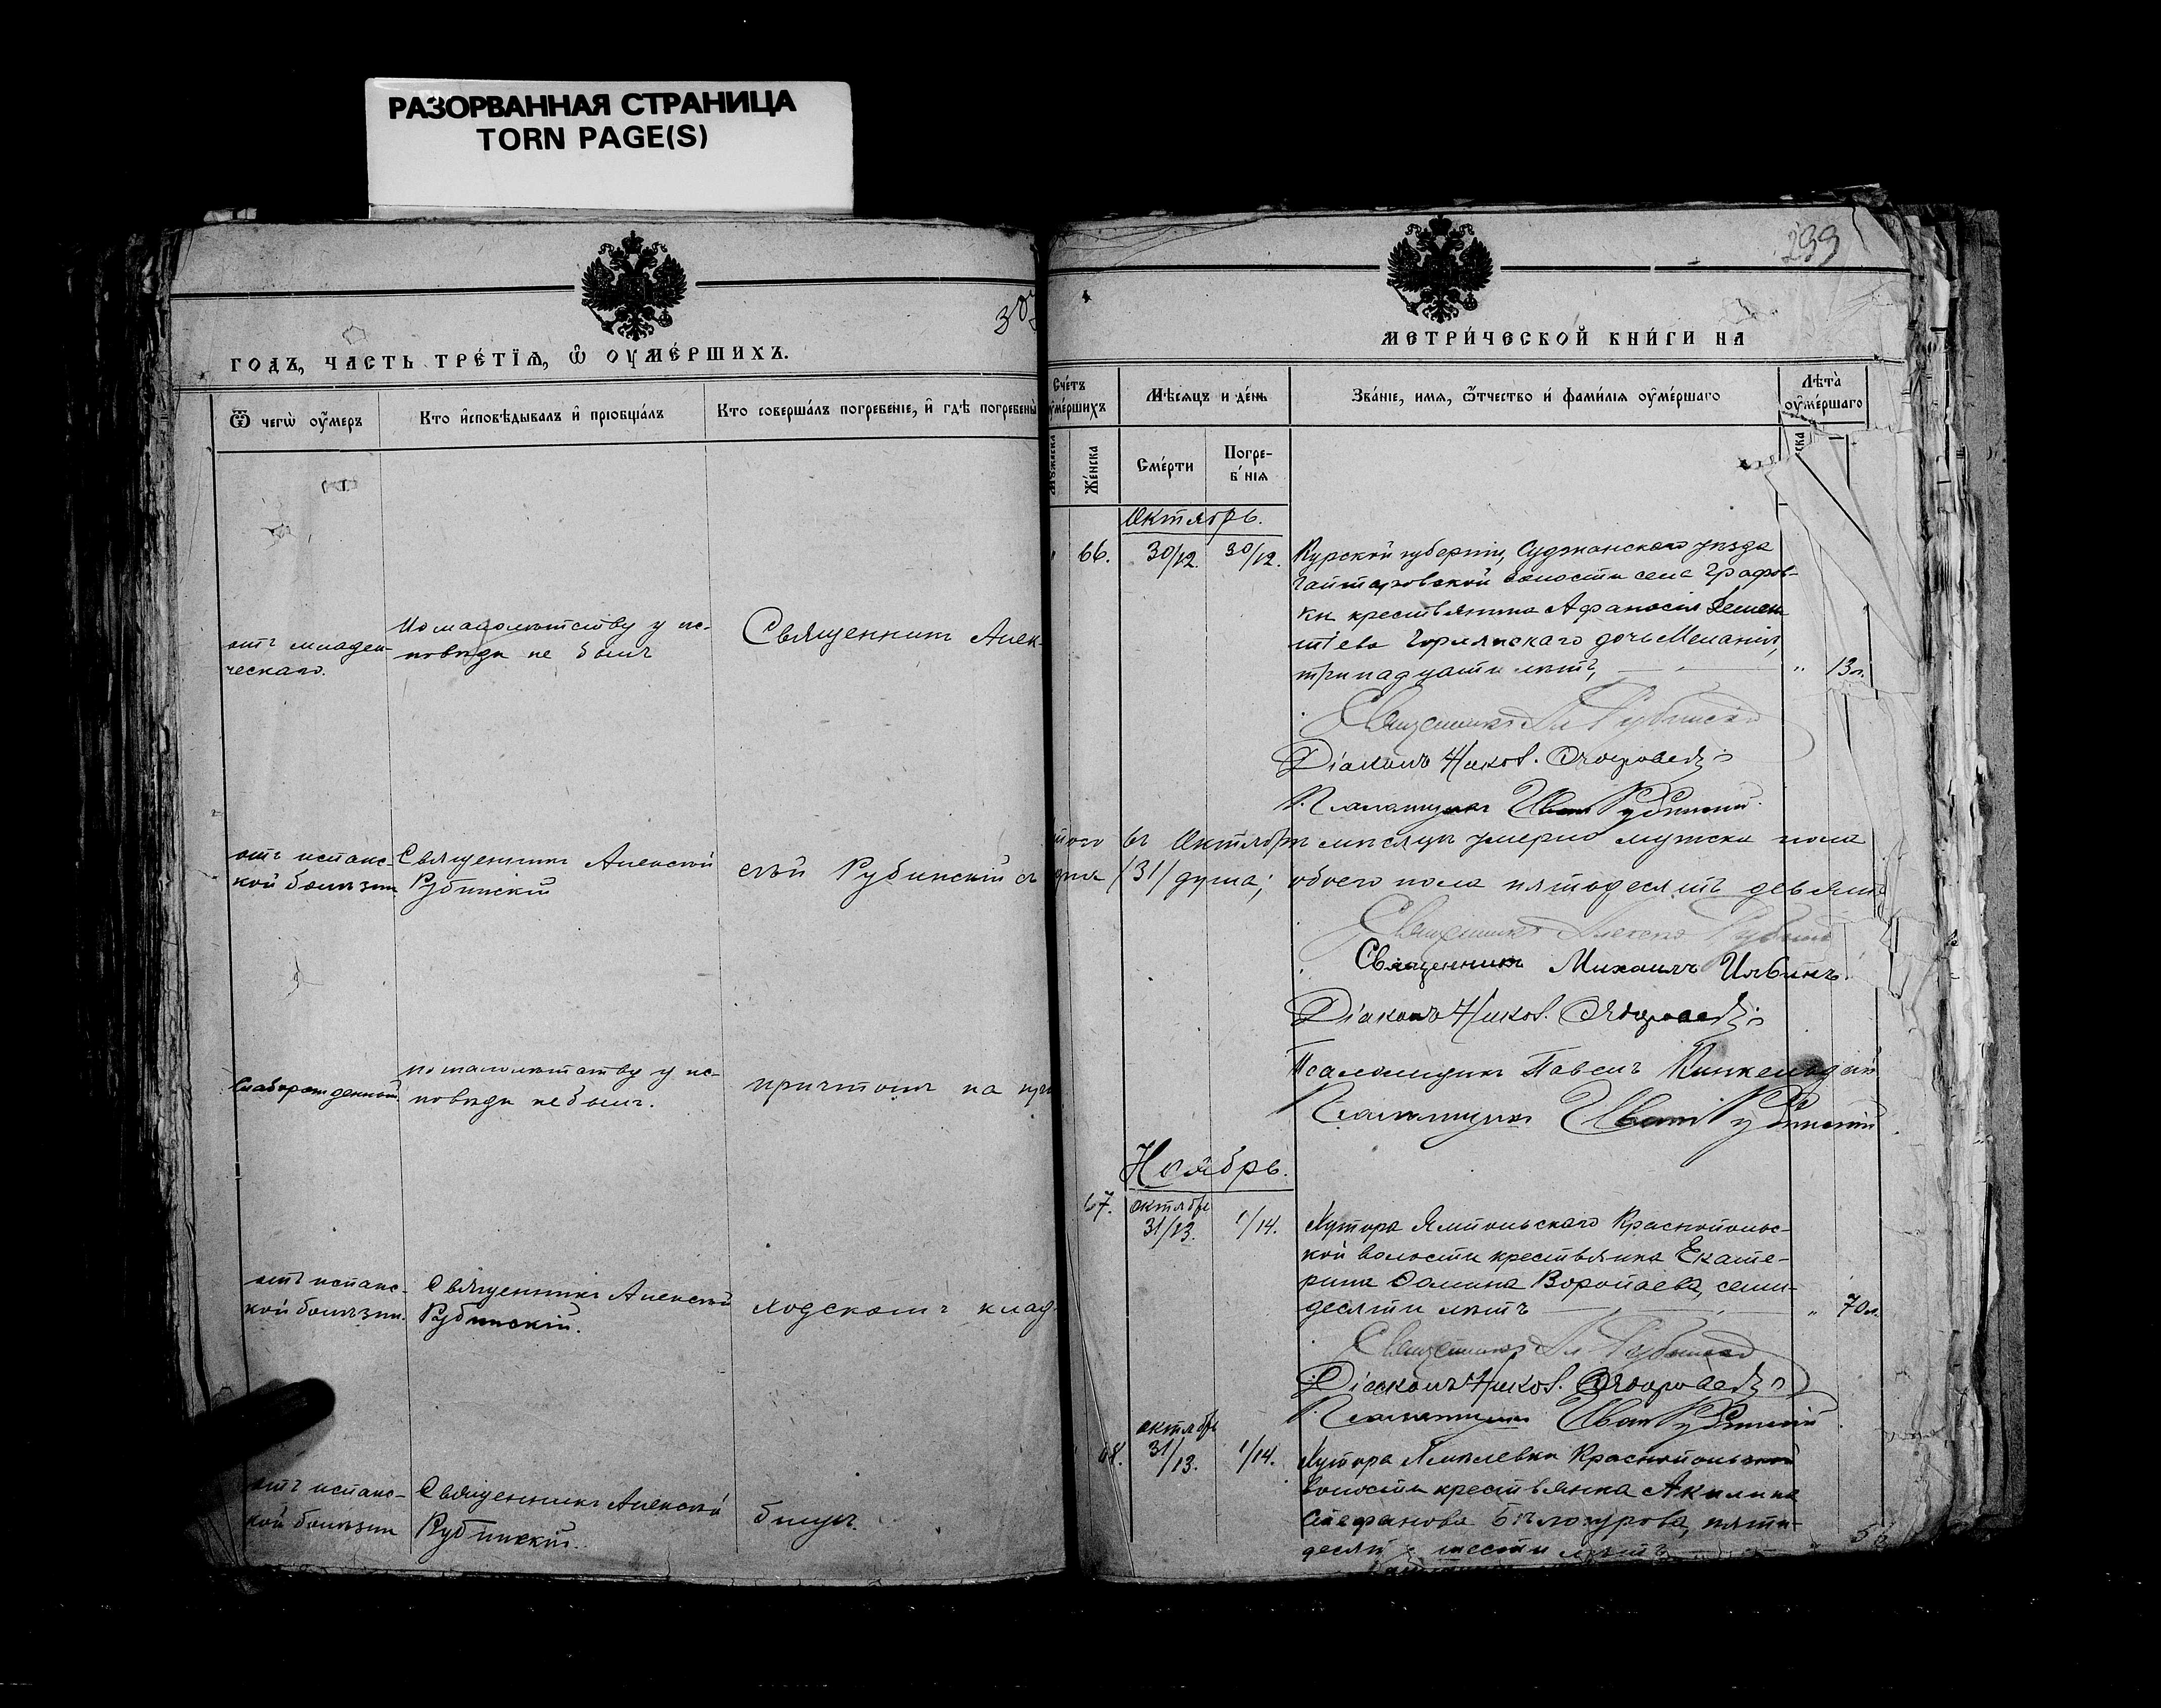 РАЗОРВАННАЯ СТРАНИЦА
TORN PAGE(S)
годъ, часть трéтїѧ, ѡ҆ ᲂу҆мéршихъ.
Ѿ чегѡ̀ ᲂу҆́меръ
Кто и҆сповѣ́дывалъ и҆ прїобща́лъ
Кто соверша́лъ погребéніе, и҆ гдѣ̀ погребены̀
отъ младен-
ческаго.
По малолѣтству у ис-
повѣди не былъ
Священникъ Алек-
отъ испанс-
кой болѣзни
Священникъ Алексѣй
Рубинскій
сѣй Рубинскій съ
Слаборожденный.
по малолѣтству у ис-
повѣди не былъ.
причтомъ на
отъ испанс-
кой болѣзни.
Священникъ Алексѣй
Рубинскій.
ходскомъ клад-
отъ испанс-
кой болѣзни
Священникъ Алексѣй
Рубинскій.
бищѣ.
299
метри́ческой кни́ги на
Счéтъ
ᲂу҆мéршихъ
Мѣ́сѧцъ и҆ дéнь
Зва́нїе, и҆́мѧ, ѻ҆́тчество и҆ фами́лїѧ ᲂу҆мéршаго
Лѣ́та
ᲂу҆мéршаго
Мꙋ́жеска
Жéнска
Смéрти
Погре-
бéнїѧ
Октябрь.
66.
30/12.
30/12.
Курской губерніи, Суджанскаго уѣзда
волости села Графов-
ки крестьянина Афанасія Демен-
тіева Горлянскаго дочь Меланія,
тринадцати лѣтъ,
" 13 л.
Священникъ Ал Рубинскій
Діаконъ Никол.
Псаломщикъ Иван Рубинскій.
въ Октябрѣ мѣсяцѣ умерло мужска пола
/31/ душа; обоего пола пятьдесятъ девять
Священникъ Алексѣй Рубинскій
Священникъ Михаилъ Ильинъ.
Діаконъ Никол.
Псаломщикъ Павелъ
Псаломщикъ Иван Рубинскій
Ноябрь.
67.
октября
31/13.
1/14.
Хутора Ямпольскаго Краснопольс-
кой волости крестьянка Екате-
рина Фомина Воропаева, семи-
десяти лѣтъ
" 70 л.
Священникъ Ал Рубинскій
Діаконъ Никол.
Псаломщикъ Иван Рубинскій
68.
октября
31/13.
1/14.
Хутора Яковлевки Краснопольской
волости крестьянка Акилина
Стефанова Бѣлокурова, пяти-
десяти шести лѣтъ
" 56